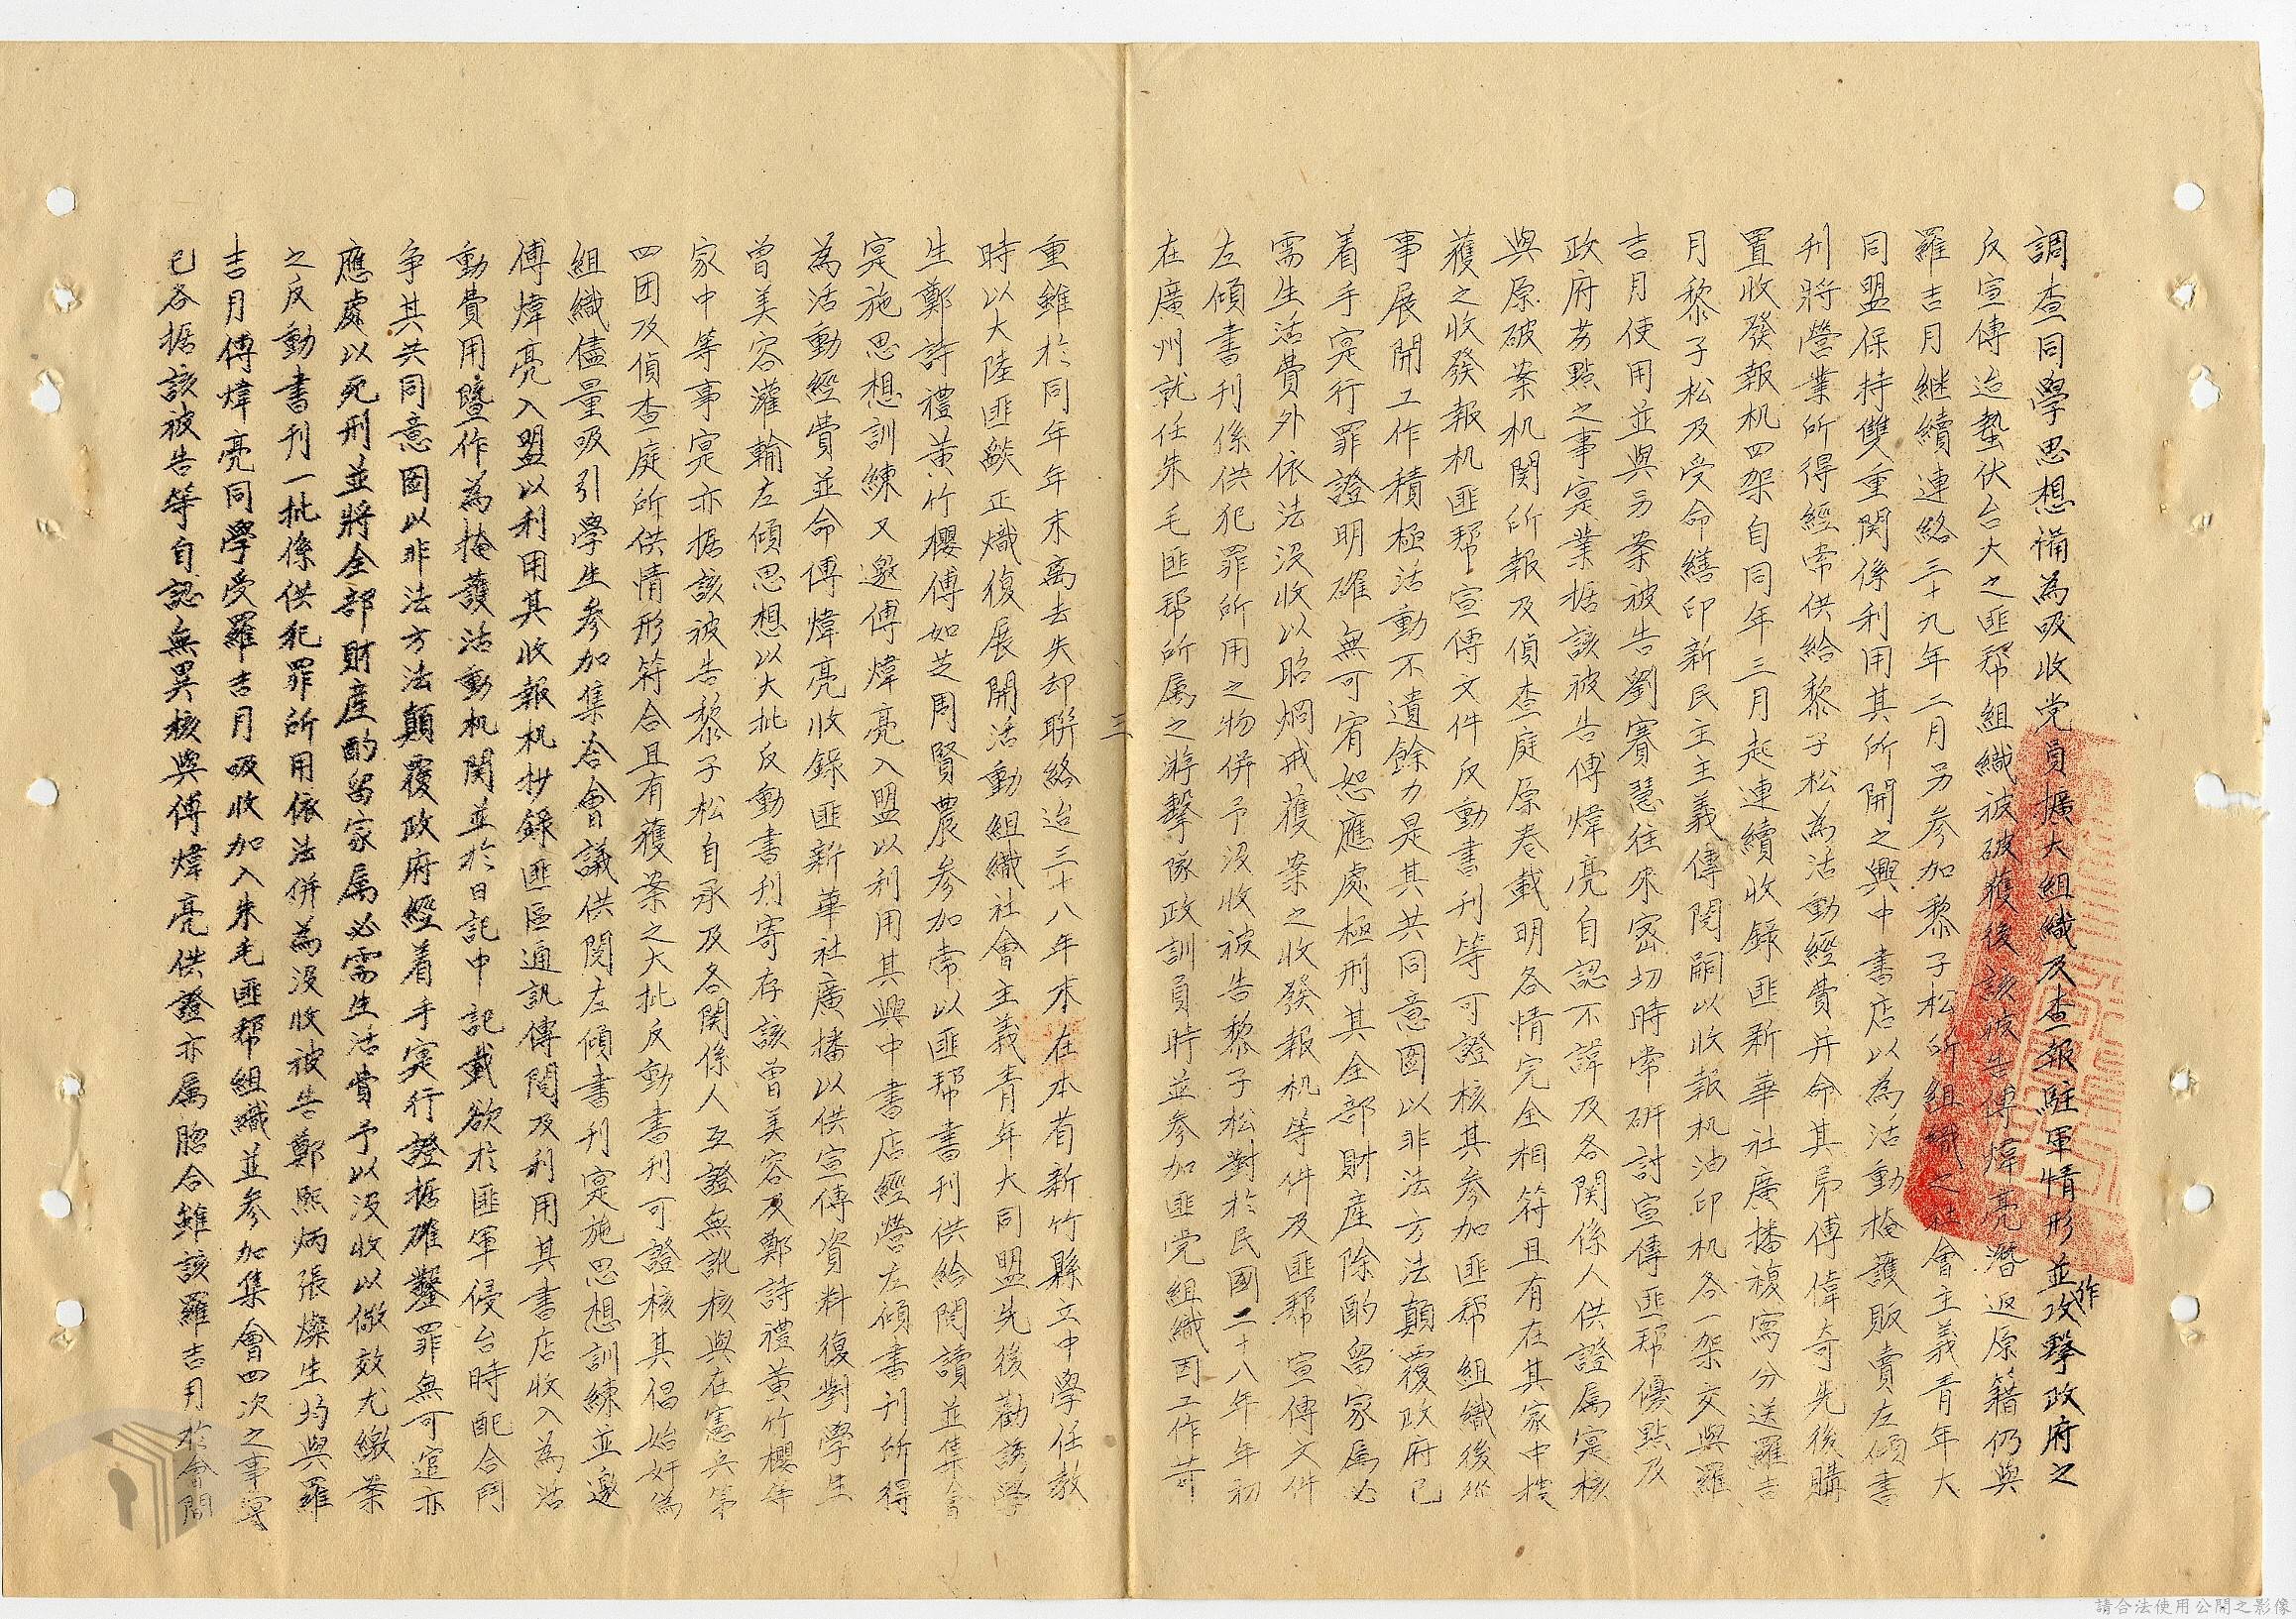 調查同學思想備為吸收党員擴大組織及查報駐軍情形並作攻擊政府之
反宣傳迨蟄伏台大之匪帮組織被破獲後該被告傅煒亮潛返原籍仍與
羅吉月継續連絡三十九年二月另参加黎子松所組織之社會主義青年大
同盟保持雙重関係利用其所開之興中書店以為活動掩護販賣左傾書
刋將營業所得經常供給黎子松為活動經費并命其弟傅偉奇先後購
置收發報机四架自同年三月起連續收錄匪新華社廣播複寫分送羅吉
月黎子松及受命繕印新民主主義傳閱嗣以收報机油印机各一架交與羅
吉月使用並與另案被告劉賽慧往來密切時常研討宣傳匪帮優點及
政府劣點之事寔業据該被告傅煒亮自認不諱及各関係人供證属寔核
與原破案机関所報及偵查庭原卷載明各情完全相符且有在其家中搜
獲之收發報机匪帮宣傳文件反動書刋等可證核其参加匪帮組織後從
事展開工作積極活動不遺餘力是其共同意圖以非法方法顛覆政府已
着手寔行罪證明確無可宥恕應處極刑其全部財産除酌留家属必
需生活費外依法没收以昭烱戒獲案之收發報机等件及匪帮宣傳文件
左傾書刋係供犯罪所用之物併予没收被告黎子松對於民國二十八年年初
在廣州就任朱毛匪帮所属之游擊隊政訓員時並参加匪党組織因工作苛
三
重雖於同年年末离去失却聯絡迨三十八年末在本省新竹縣立中學任教
時以大陸匪燄正熾復展開活動組織社會主義青年大同盟先後勸誘學
生鄭詩禮黃竹櫻傅如芝周賢農参加常以匪帮書刋供給閱讀並集會
寔施思想訓練又邀傅煒亮入盟以利用其興中書店經營左傾書刋所得
為活動經費並命傅煒亮收錄匪新華社廣播以供宣傳資料復對學生
曾美容灌輸左傾思想以大批反動書刋寄存該曾美容及鄭詩禮黃竹櫻等
家中等事寔亦据該被告黎子松自承及各関係人互證無訛核與在憲兵第
四团及偵查庭所供情形符合且有獲案之大批反動書刋可證核其倡始奸偽
組織儘量吸引學生参加集會會議供閱左傾書刋寔施思想訓練並邀
傅煒亮入盟以利用其收報机抄錄匪區通訊傳閱及利用其書店收入為活
動費用暨作為掩護活動机関並於日記中記載欲於匪軍侵台時配合鬥
争其共同意圖以非法方法顛覆政府經着手寔行證据確鑿罪無可逭亦
應處以死刑並將全部財産酌留家属必需生活費予以没收以儆效尤繳案
之反動書刋一批係供犯罪所用依法併為没收被告鄭熙炳張燦生均與羅
吉月傅煒亮同學受羅吉月吸收加入朱毛匪帮組織並参加集會四次之事寔
已各据該被告等自認無異核與傅煒亮供證亦属脗合雖該羅吉月於會間
請合法使用公開之影像